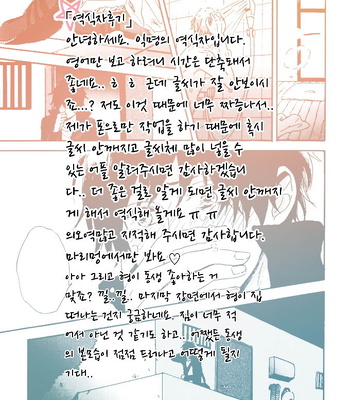 「역식자후기」
안녕하세요. 익명의 역식자입니다.
영어만 보고 하려니 시간은 단축돼서
좋네요.. ㅎ ㅎ 근데 글씨가 잘 안보이시
죠...? 저도 이것 때문에 너무 짜증나서..
제가 폰으로만 작업을 하기 때문에 혹시
글씨 안깨지고 글씨체 많이 넣을 수
있는 어플 알려주시면 감사하겠습니
다.. 더 좋은 걸로 알게 되면 글씨 안깨지
게 해서 역식해 올게요 ㅠ ㅠ
의오역많고 지적해 주시면 감사합니다.
마리멍에서만 봐요 ♡
아아 그리고 형이 동생 좋아하는 거
맞죠? 낄..낄.. 마지막 장면에서 형이 집
떠나는 건지 궁금하네요. 집이 너무 적
어서 아닌 것 같기도 하고.. 어쨌든 동생
의 본모습이 점점 드러나고 어떻게 될지
기대..